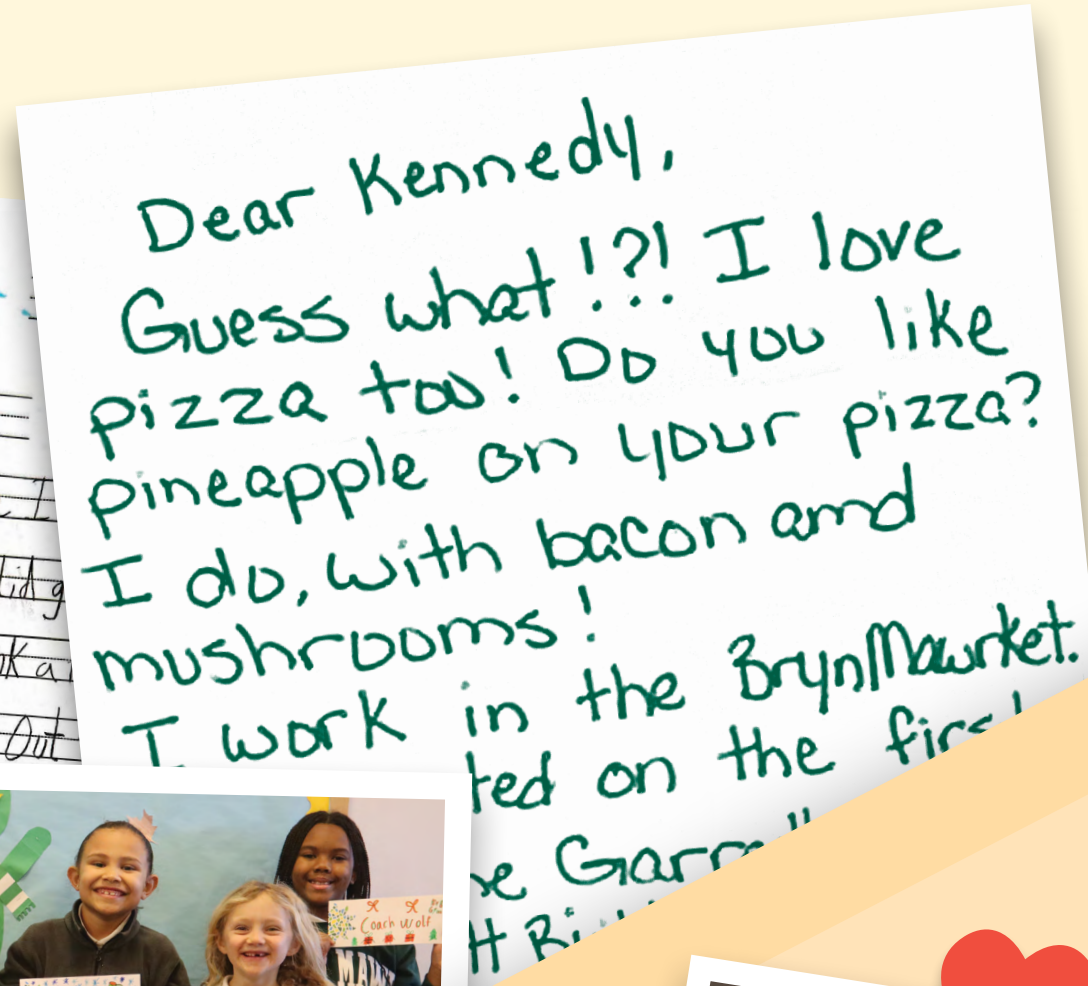 Dear Kennedy,
Guess what!?! I love
pizza too! Do you like
pineapple on your pizza?
I do, with bacon and
mushrooms!
I work in the BrynMawrket.
on the
Out
Coach Wolf
MAWR